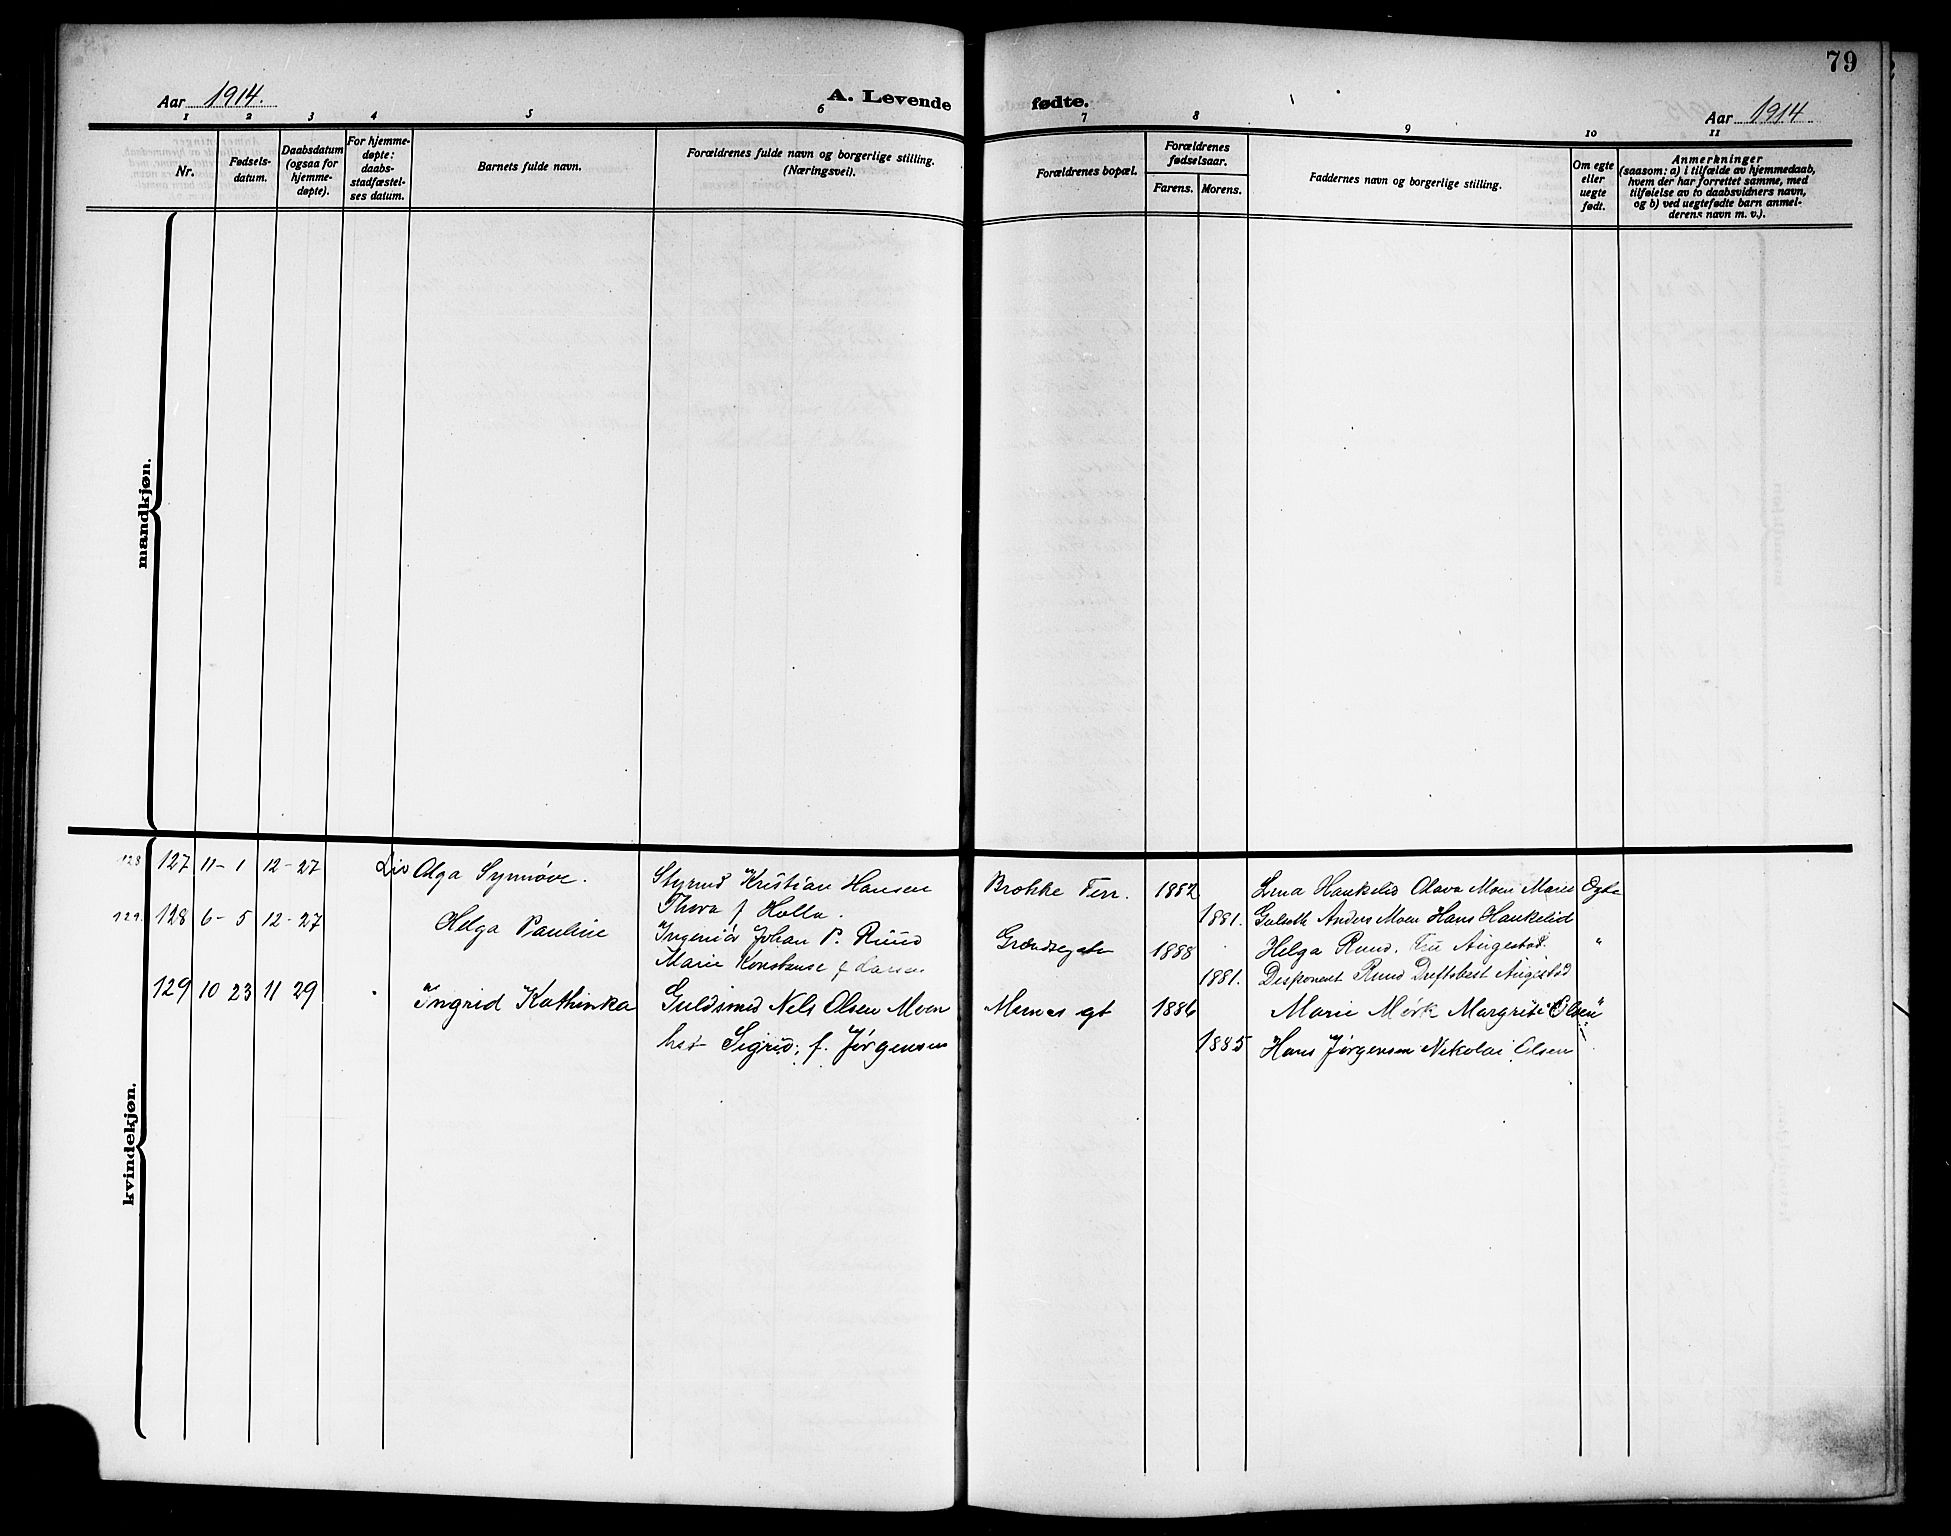 79
Aar 1914.
A. Levende fødte.
Aar 1914
1 2 3 4 5 6 7 8 9 10 11
Nr.
Fødsels-
datum.
Daabsdatum
(ogsaa for
hjemme-
døpte).
For hjemme-
døpte:
daabs-
stadfæstel-
ses datum.
Barnets fulde navn.
Forældrenes fulde navn og borgerlige stilling.
(Næringsvei).
Forældrenes bopæl.
Forældrenes
fødselsaar.
Farens. Morens.
Faddernes navn og borgerlige stilling.
Om egte
eller
uegte
født.
Anmerkninger
(saasom: a) i tilfælde av hjemmedaab,
hvem der har forrettet samme, med
tilføielse av to daabsvidners navn,
og b) ved uegtefødte barn anmel-
derens navn m. v.).
mandkjøn.
kvindekjøn.
128 127 11-1 12-27 Liv Olga Synnøve. Styrmd Kristian Hansen Brokke Terr. 1882 Erna Haukelid Olava Moen Marie Egte
Thora f Holla. 1881. Anders Moen Hans Haukelid
129. 128 6-5 12-27 Helga Pauline Ingeniør Johan P. Ruud 1888 Helga Ruud. Fru Augestad. "
Marie Konstanse f Larsen 1881. Disponent Ruud Augestad
129 10 23 11 29 Ingrid Kathinka Guldsmed Nels Olsen Moen gt 1886 Marie Mørk Margrite Olsen "
Sigrid; f. Jørgensen 1885 Hans Jørgensen Nikolai Olsen